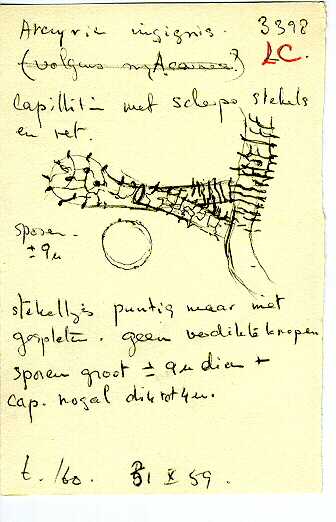 Arcyria insignis. 3398
(volgens mij Acarnea?) LC.
Capillitium met scherpe stekels
en net.
sporen
± 9µ
stekeltjes puntig maar niet
gespleten. geen verdikte knopen
sporen groot ± 9µ diam +
cap. nogal dik tot 4µ.
t. /60. 31 X 59.